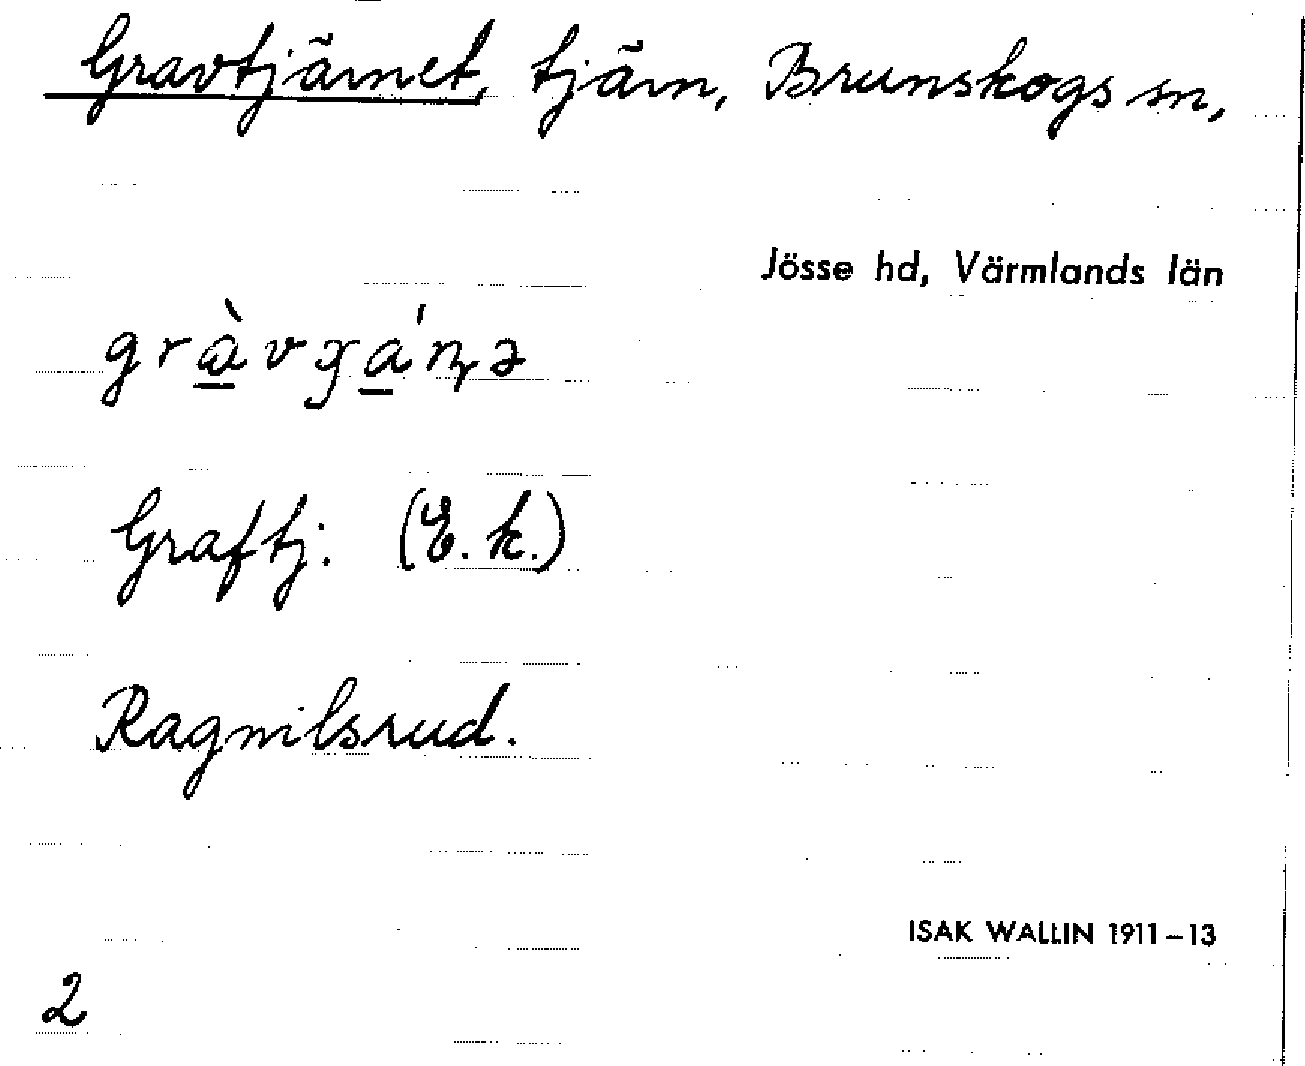 Gravtjärnet, tjärn, Brunskogs sn,
Jösse hd, Värmlands län
Graftj. (E.k.)
Ragnilsrud.
ISAK WALLIN 1911–13
2